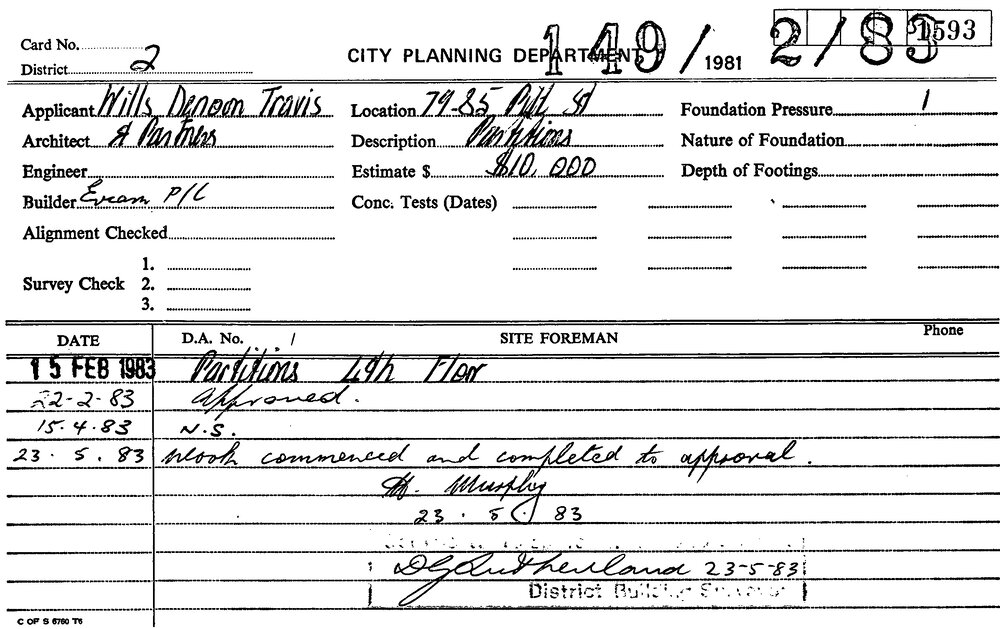 Card No.
District 2
CITY PLANNING DEPARTMENT
149/ 1981 2/83
1593
Applicant Wills Denoon Travis
Location 79-85 Pitt St
Foundation Pressure
Architect & Partners
Description Partitions
Nature of Foundation
Engineer
Estimate $ $10,000
Depth of Footings
Builder P/L
Conc. Tests (Dates)
Alignment Checked
Survey Check
1.
2.
3.
DATE D.A. No. / SITE FOREMAN Phone
15 FEB 1983 Partitions 4th Floor
22-2-83 approved.
15.4.83 N.S.
23.5.83 Work commenced and completed to approval.
Murphy
23.5.83
DG Sutherland 23-5-83
District Building Surveyor
C OF S 6760 T6